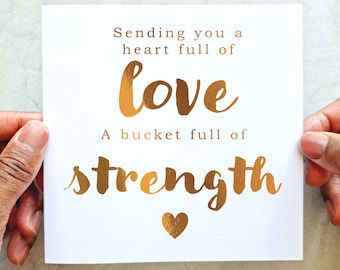 Sending you a
heart full of
love
A bucket full of
strength